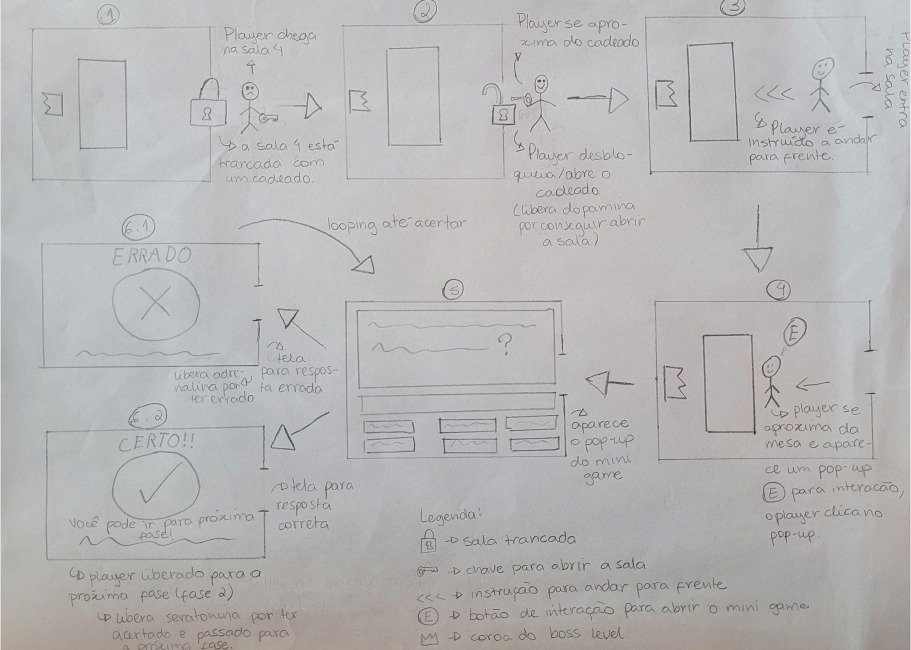 1
Player chega
na sala 4
↳ a sala 4 está
trancada com
um cadeado.
2
Player se apro-
xima do cadeado
↳ Player desblo-
queia/abre o
cadeado
(libera dopamina
por conseguir abrir
a sala)
3
Player entra
na sala
<<<
↳ Player é
instruído a andar
para frente.
4
E
↳ player se
aproxima da
mesa e apare-
ce um pop-up
E para interação,
o player clica no
pop-up.
5
?
↳ aparece
o pop-up
do mini
game
looping até acertar
6.1
ERRADO
↳ tela
para respos-
ta errada
libera adre-
nalina por
ter errado
6.2
CERTO!!
Você pode ir para próxima
fase!
↳ tela para
resposta
correta
↳ player liberado para a
próxima fase (fase 2)
↳ libera seratonina por ter
acertado e passado para
a próxima fase.
Legenda:
→ sala trancada
→ chave para abrir a sala
<<< → instrução para andar para frente
E → botão de interação para abrir o mini game
→ coroa do boss level.